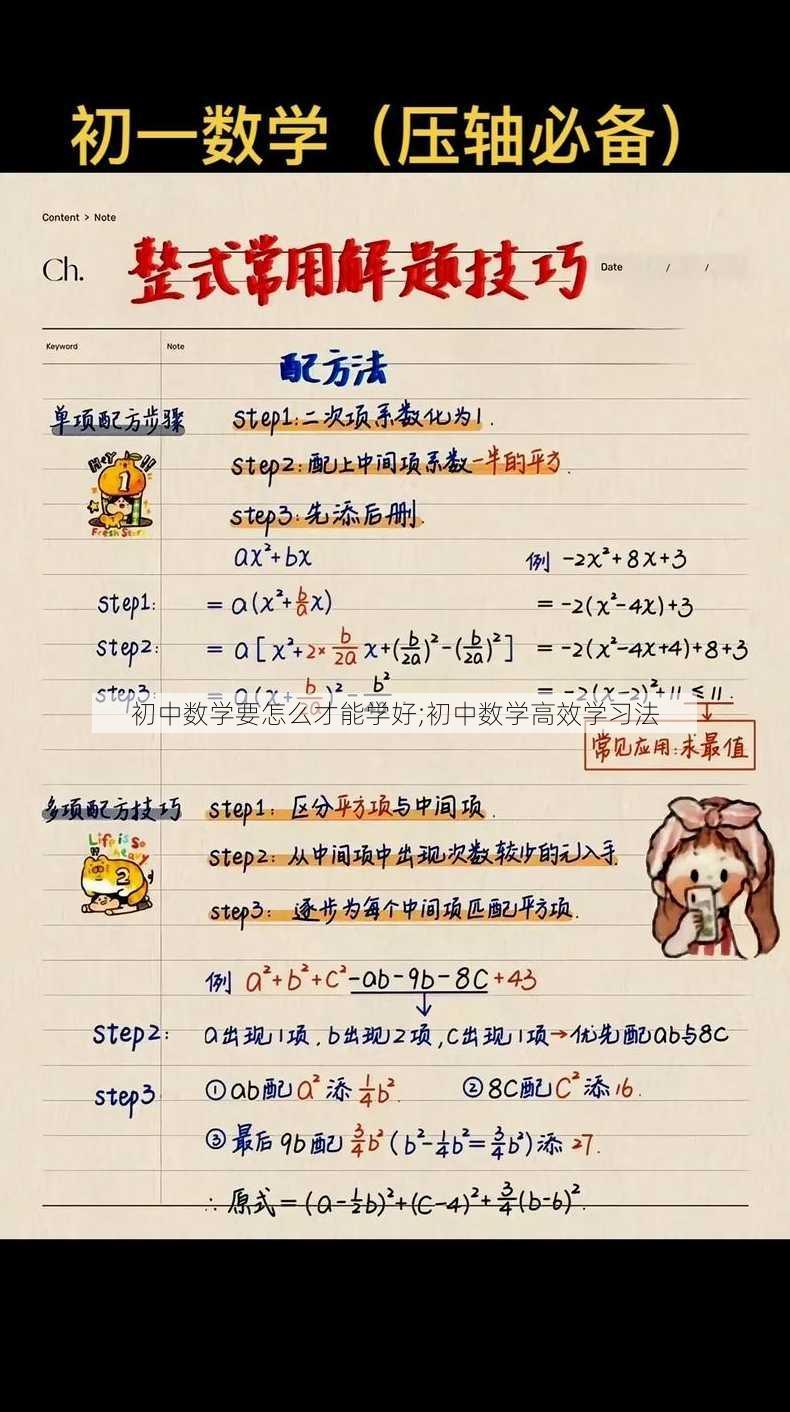 初一数学（压轴必备）
Content > Note
Ch. 整式常用解题技巧 Date / /
Keyword Note
配方法
单项配方步骤 step1:二次项系数化为1.
step2:配上中间项系数一半的平方.
Hey!!
1
Fresh Start
step3:先添后删.
ax²+bx 例 -2x²+8x+3
step1: =a(x²+b/a x) =-2(x²-4x)+3
step2: =a[x²+2×b/2a x+(b/2a)²-(b/2a)²] =-2(x²-4x+4)+8+3
step3: =a(x+b/2a)²-b²/4a =-2(x-2)²+11≤11.
初中数学要怎么才能学好;初中数学高效学习法
常见应用:求最值
多项配方技巧 step1: 区分平方项与中间项.
Life is So
heavy
2
step2: 从中间项中出现次数较少的元入手.
step3: 逐步为每个中间项匹配平方项.
例 a²+b²+c²-ab-9b-8c+43
step2: a出现1项,b出现2项,c出现1项→优先配ab与8c
step3 ①ab配a²添1/4b². ②8c配c²添16.
③最后9b配3/4b²(b²-1/4b²=3/4b²)添27.
∴原式=(a-1/2b)²+(c-4)²+3/4(b-6)².